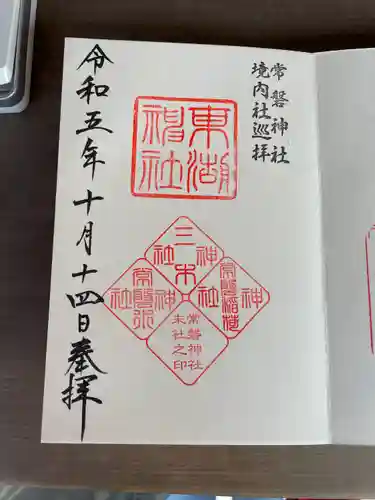 常磐神社
境内社巡拝
東湖
神社
三木
神社
常磐稲荷
神社
常磐神社
末社之印
令和五年十月十四日奉拝